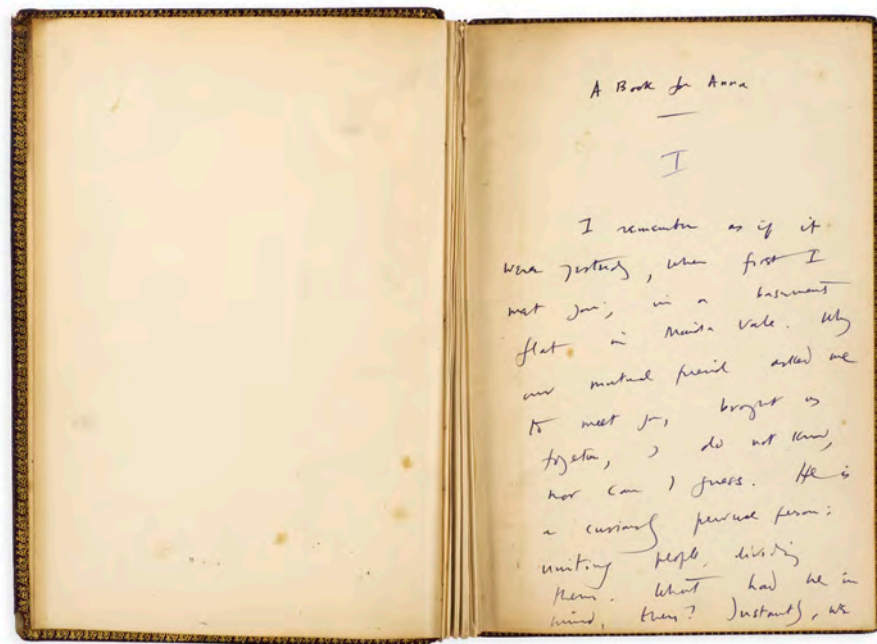 A Book for Anna
I
I remember as if it
were yesterday, when first I
met you; in a basement
flat in Maida Vale. Why
our mutual friend asked me
to meet you, brought us
together, I do not know,
nor can I guess. He is
a curiously person:
uniting people, dividing
them. What had he in
mind, then? Instantly, we